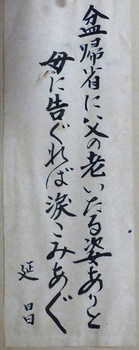 盆帰省に父の老いたる姿ありと
母に告ぐれば涙こみあぐ
延昌